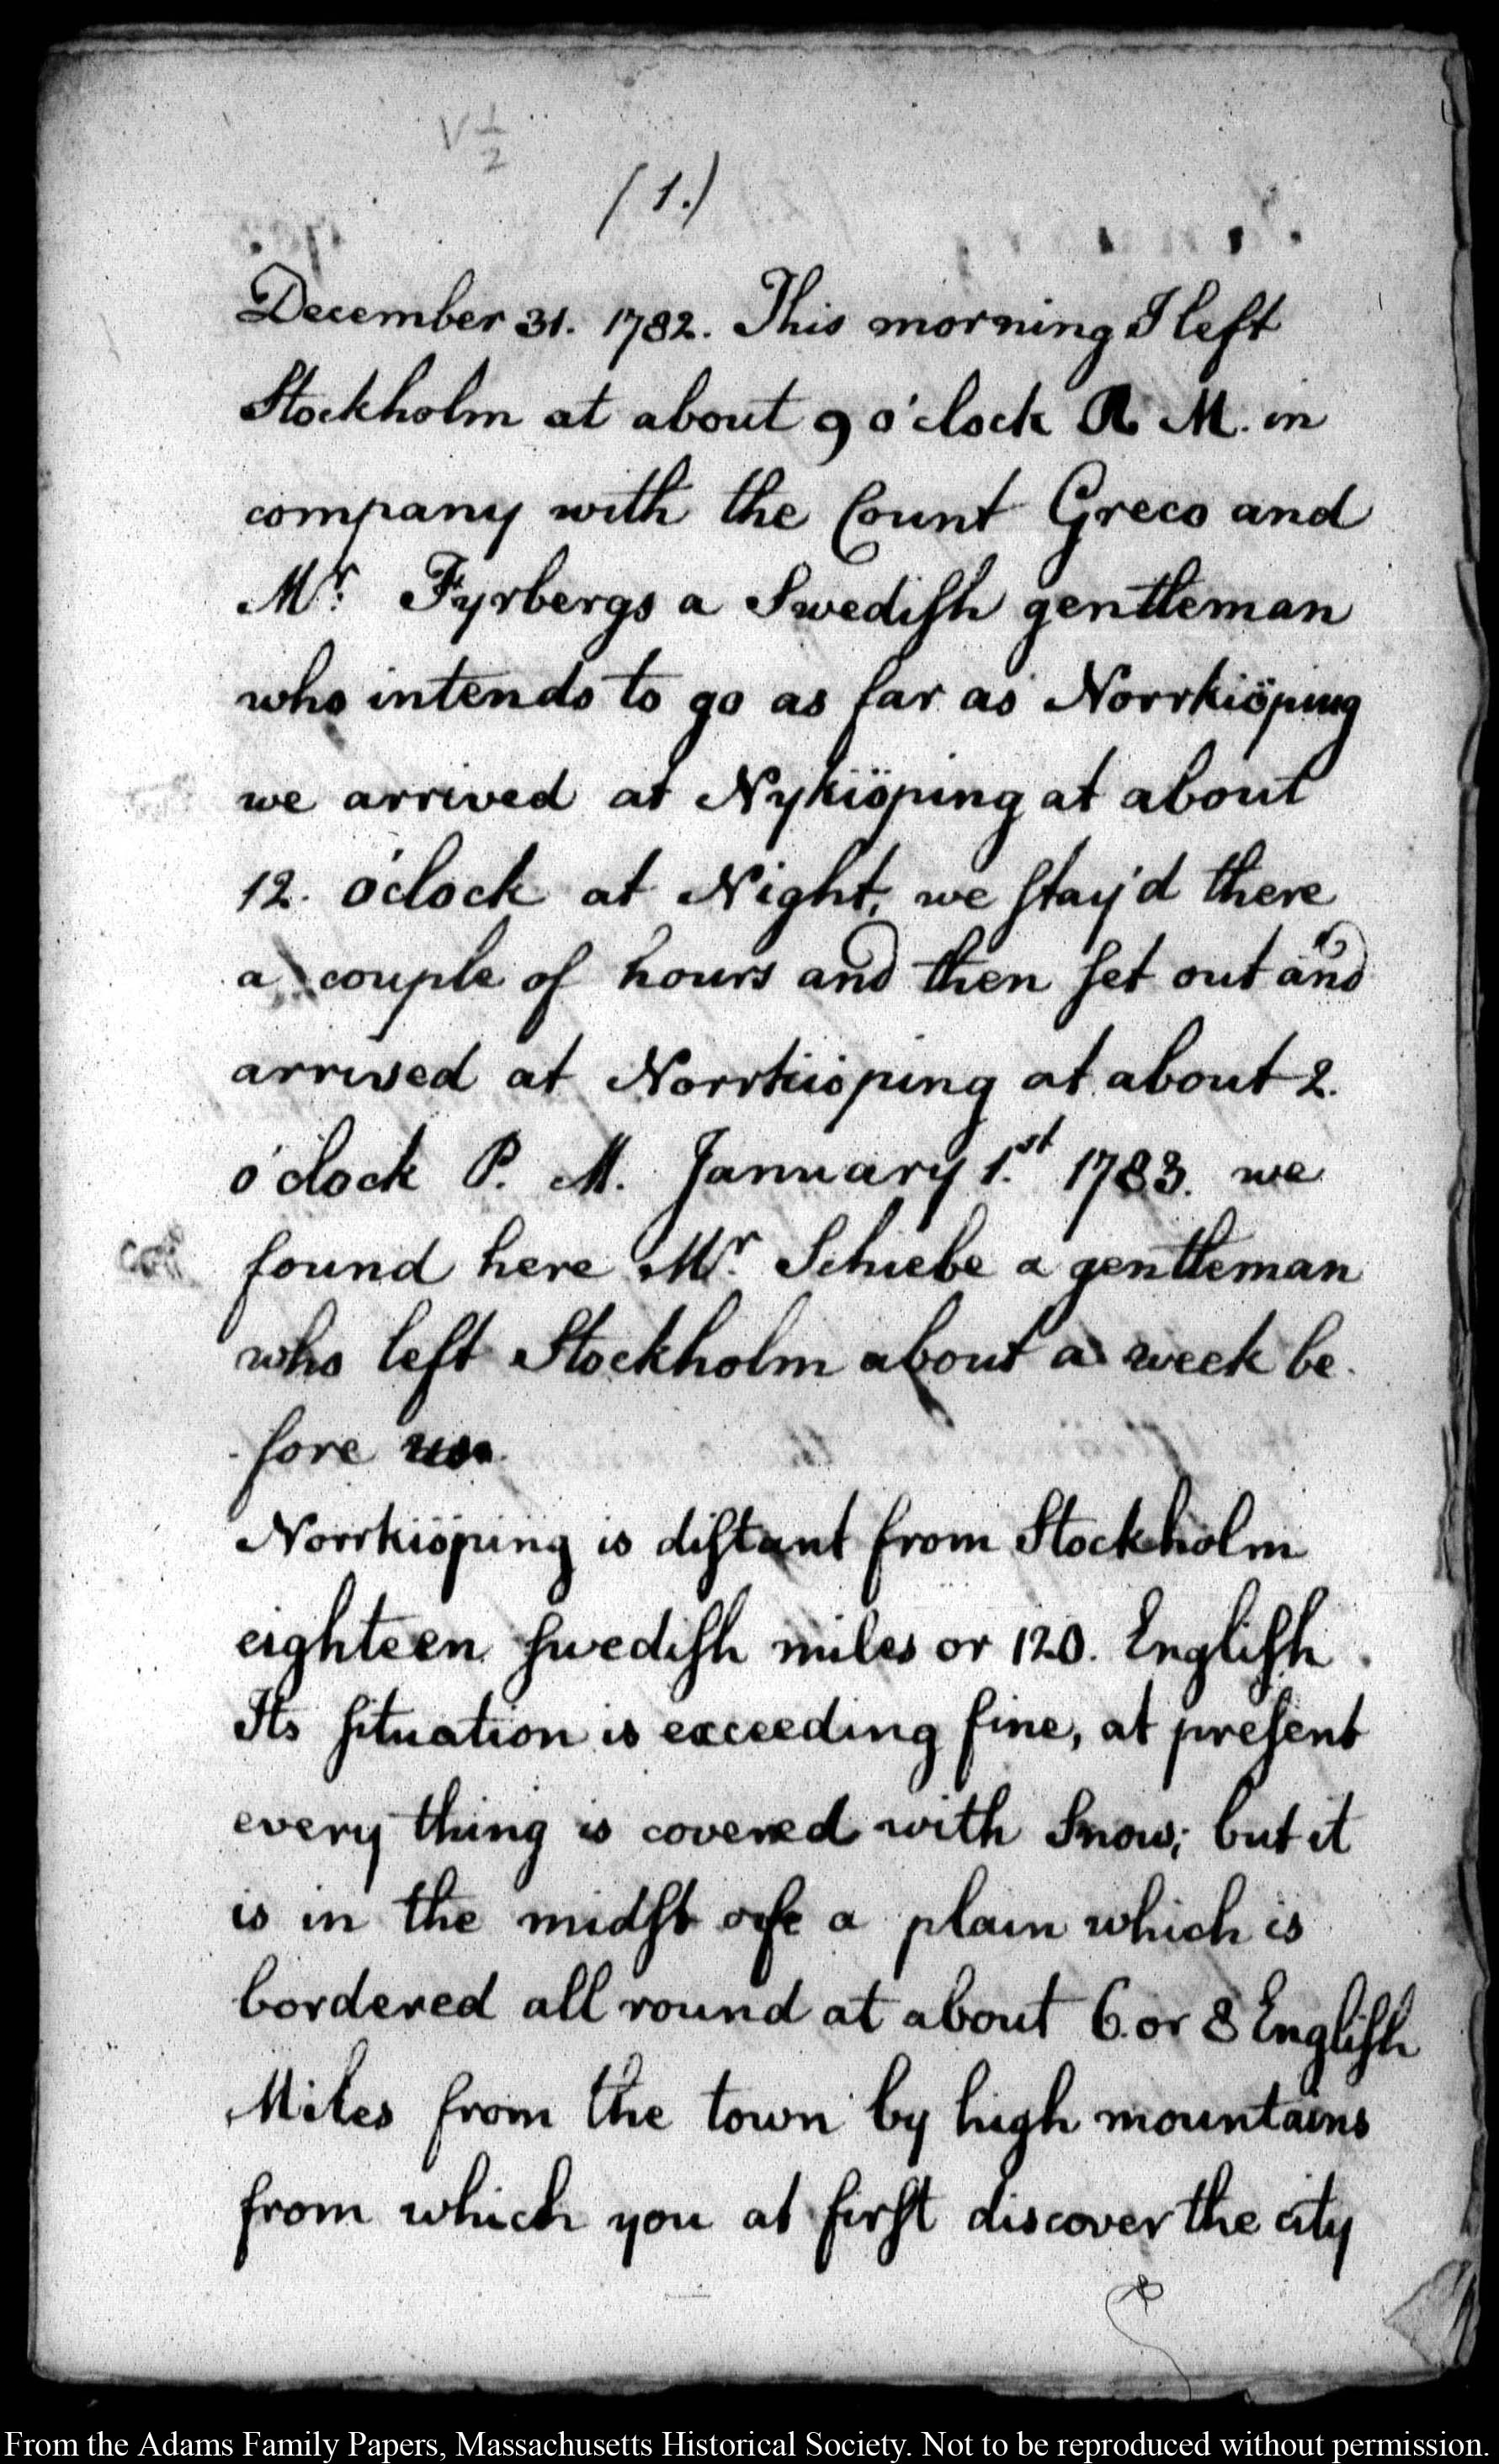 V 1/2
(1.)
December 31. 1782. This morning I left
Stockholm at about 9 o'clock A. M. in
company with the Count Greco and
Mr. Fyrbergs a Swediſh gentleman
who intends to go as far as Norrkiöping
we arrived at Nykiöping at about
12. o'clock at Night, we ſtay'd there
a couple of hours and then ſet out and
arrived at Norrkiöping at about 2.
o'clock P. M. January 1.st 1783. we
found here Mr. Schiebe a gentleman
who left Stockholm about a week be
fore us.
Norrkiöping is diſtant from Stockholm
eighteen ſwediſh miles or 120. Engliſh.
Its ſituation is exceeding fine, at preſent
every thing is covered with Snow; but it
is in the midſt of a plain which is
bordered all round at about 6. or 8 Engliſh
Miles from the town by high mountains
from which you at firſt discover the city
From the Adams Family Papers, Massachusetts Historical Society. Not to be reproduced without permission.